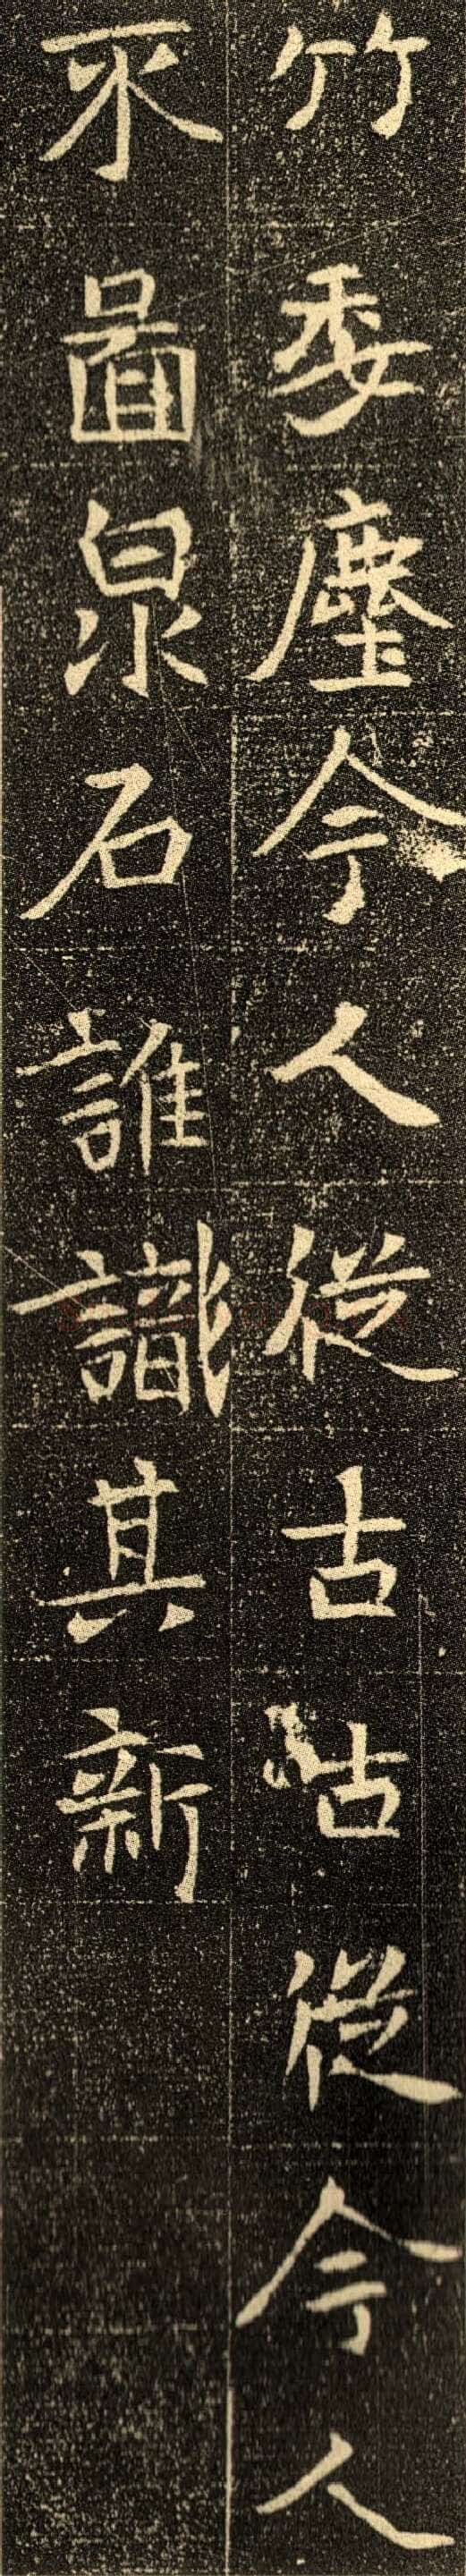 竹委塵今人從古古從今人
不啚泉石誰識其新